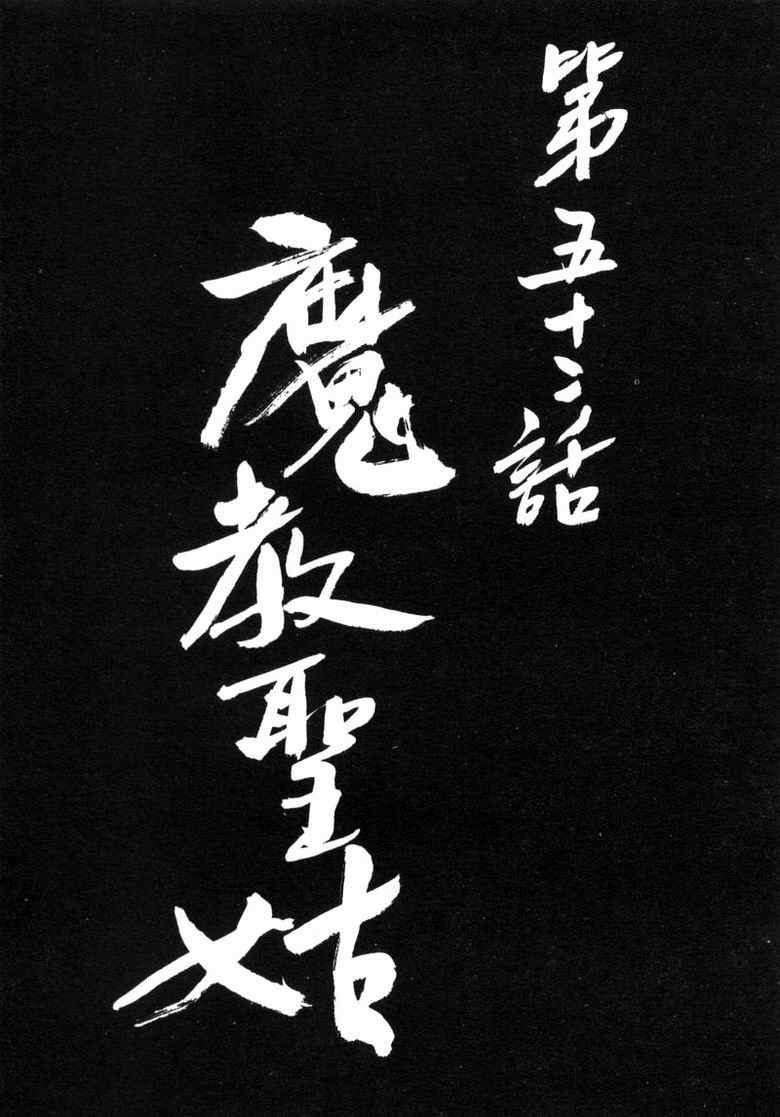 第五十二話
魔教聖姑